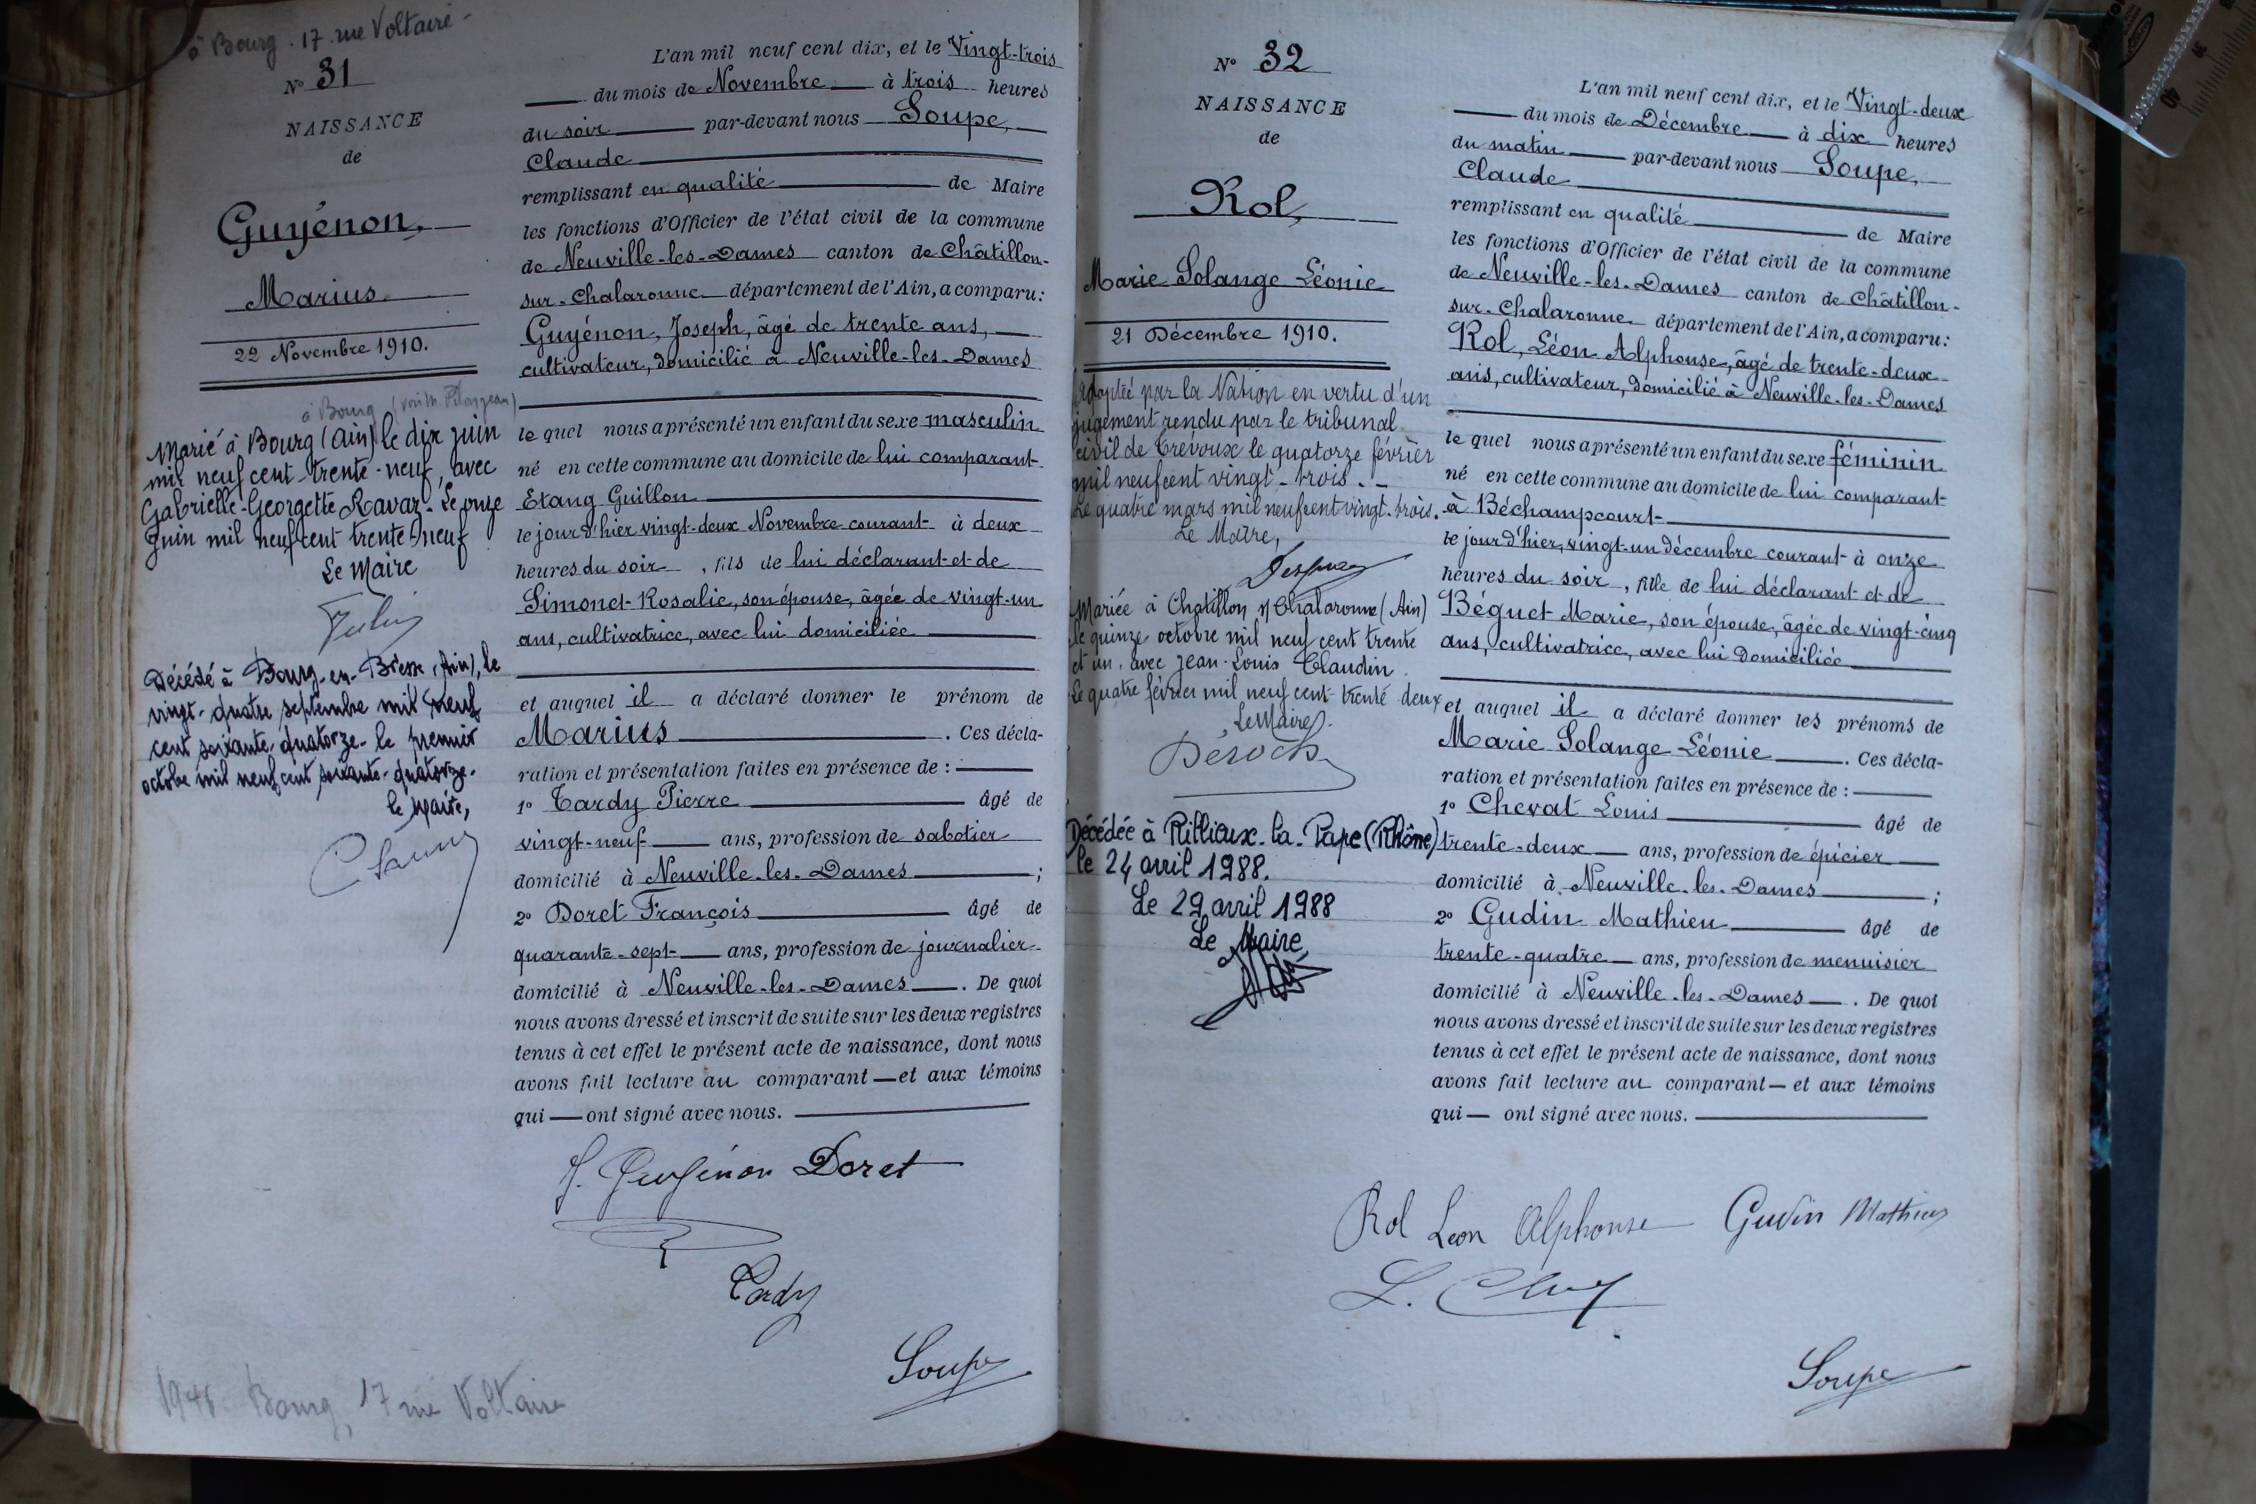 à Bourg. 17 rue Voltaire -
N° 31
NAISSANCE
de
Guyénon,
Marius
22 Novembre 1910.
à Bourg
Marié à Bourg (Ain) le dix juin
mil neuf cent trente-neuf, avec
Gabrielle-Georgette Ravaz. Le onze
Juin mil neuf cent trente neuf
Le Maire
Décédé à Bourg-en-Bresse (Ain), le
vingt-quatre septembre mil neuf
cent soixante-quatorze. le premier
octobre mil neuf cent soixante-quatorze.
le Maire,
L'an mil neuf cent dix, et le Vingt-trois
du mois de Novembre à trois heures
du soir par-devant nous Soupe,
Claude
remplissant en qualité de Maire
les fonctions d'Officier de l'état civil de la commune
de Neuville-les-Dames canton de Châtillon-
sur-Chalaronne département de l'Ain, a comparu:
Guyénon, Joseph, âgé de trente ans,
cultivateur, domicilié à Neuville-les-Dames
le quel nous a présenté un enfant du sexe masculin
né en cette commune au domicile de lui comparant
Etang Guillon
le jour d'hier vingt-deux Novembre courant à deux
heures du soir, fils de lui déclarant et de
Simonet Rosalie, son épouse, âgée de vingt-un
ans, cultivatrice, avec lui domiciliée
et auquel il a déclaré donner le prénom de
Marius. Ces décla-
ration et présentation faites en présence de :
1° Tardy Pierre âgé de
vingt-neuf ans, profession de sabotier
domicilié à Neuville-les-Dames ;
2° Doret François âgé de
quarante-sept ans, profession de journalier
domicilié à Neuville-les-Dames. De quoi
nous avons dressé et inscrit de suite sur les deux registres
tenus à cet effet le présent acte de naissance, dont nous
avons fait lecture au comparant — et aux témoins
qui — ont signé avec nous.
J. Guyénon Doret
Tardy
Soupe
1946 Bourg, 17 rue Voltaire
N° 32
NAISSANCE
de
Rol,
Marie Solange Léonie
21 Décembre 1910.
Adoptée par la Nation en vertu d'un
jugement rendu par le tribunal
civil de Trévoux le quatorze février
mil neuf cent vingt-trois. -
Le quatre mars mil neuf cent vingt-trois.
Le Maire,
Mariée à Chatillon s/ Chalaronne (Ain)
le quinze octobre mil neuf cent trente
et un, avec Jean-Louis Claudin.
Le quatre février mil neuf cent trente deux
Le Maire
Décédée à Rillieux-la-Pape (Rhône)
le 24 avril 1988.
Le 29 avril 1988
Le Maire
L'an mil neuf cent dix, et le Vingt-deux
du mois de Décembre à dix heures
du matin par-devant nous Soupe,
Claude
remplissant en qualité de Maire
les fonctions d'Officier de l'état civil de la commune
de Neuville-les-Dames canton de Châtillon-
sur-Chalaronne département de l'Ain, a comparu:
Rol, Léon Alphonse, âgé de trente-deux
ans, cultivateur, domicilié à Neuville-les-Dames
le quel nous a présenté un enfant du sexe féminin
né en cette commune au domicile de lui comparant
à Béchampcourt
le jour d'hier, vingt-un décembre courant à onze
heures du soir, fille de lui déclarant et de
Béguet Marie, son épouse, âgée de vingt-cinq
ans, cultivatrice, avec lui domiciliée
et auquel il a déclaré donner les prénoms de
Marie Solange Léonie. Ces décla-
ration et présentation faites en présence de :
1° Chevat Louis âgé de
trente-deux ans, profession de épicier
domicilié à Neuville-les-Dames ;
2° Gudin Mathieu âgé de
trente-quatre ans, profession de menuisier
domicilié à Neuville-les-Dames. De quoi
nous avons dressé et inscrit de suite sur les deux registres
tenus à cet effet le présent acte de naissance, dont nous
avons fait lecture au comparant — et aux témoins
qui — ont signé avec nous.
Rol Leon Alphonse Gudin Mathieu
Soupe
40